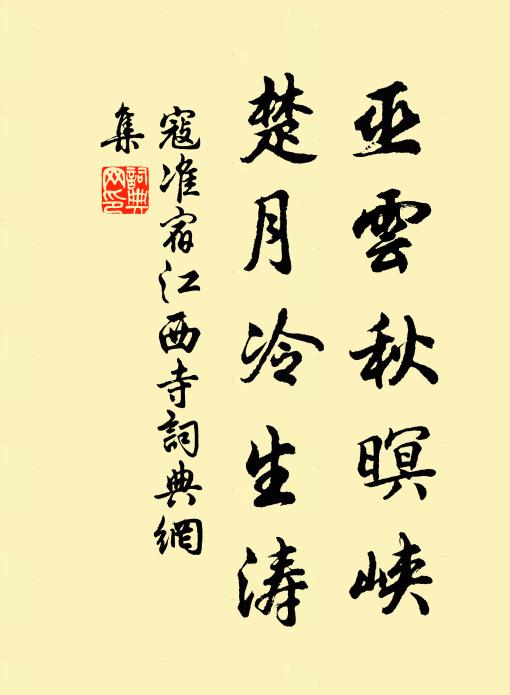 巫雲秋暝峡
楚月冷生涛
寇准宿江西寺詞典網
集
詞典
网印